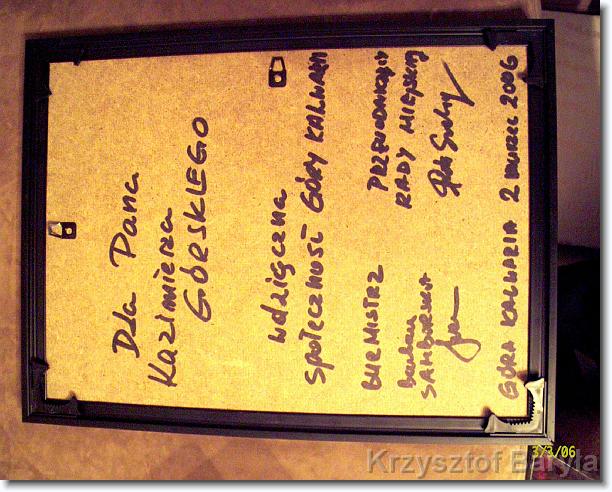 Dla Pana
Kazimierza
GÓRSKIEGO
wdzięczna
społeczność GÓRY KALWARII
BURMISTRZ
Barbara
SAMBORSKA
PRZEWODNICZĄCY
RADY MIEJSKIEJ
GÓRA KALWARIA 2 MARZEC 2006
3/3/06
Krzysztof Baryła